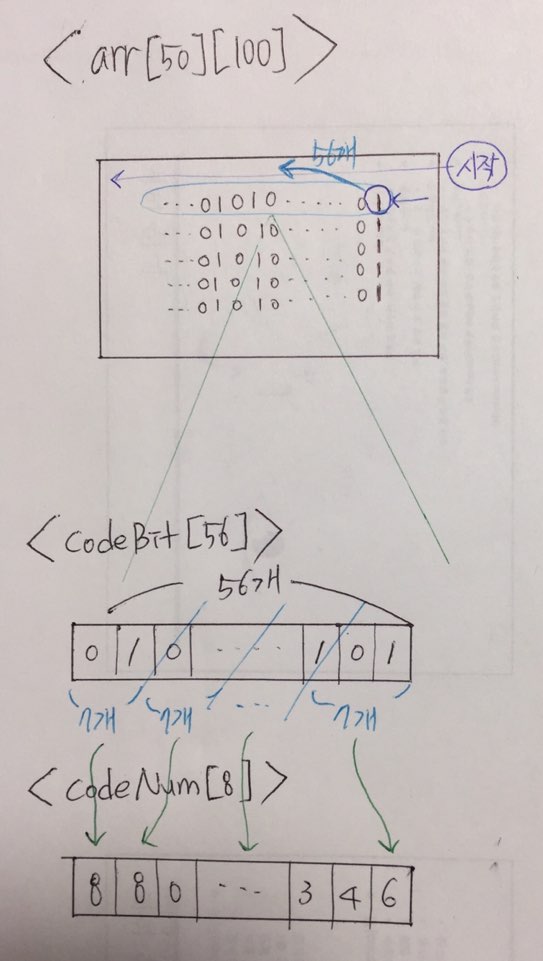 <arr[50][100]>
56개
시작
...01010......01
...01010....01
...01010....01
...01010....01
...01010....01
<codeBit[56]>
56개
0 1 0 .... 1 0 1
7개 7개 ... 7개
<codeNum[8]>
8 8 0 ... 3 4 6